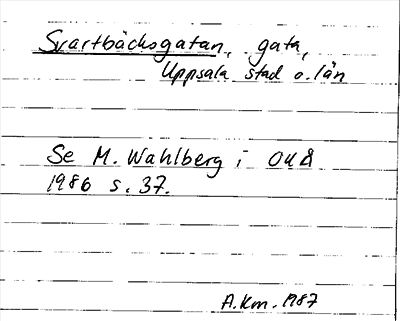 Svartbäcksgatan, gata,
Uppsala stad o. län
Se M. Wahlberg i OUÅ
1986 s. 37.
A.Km. 1987